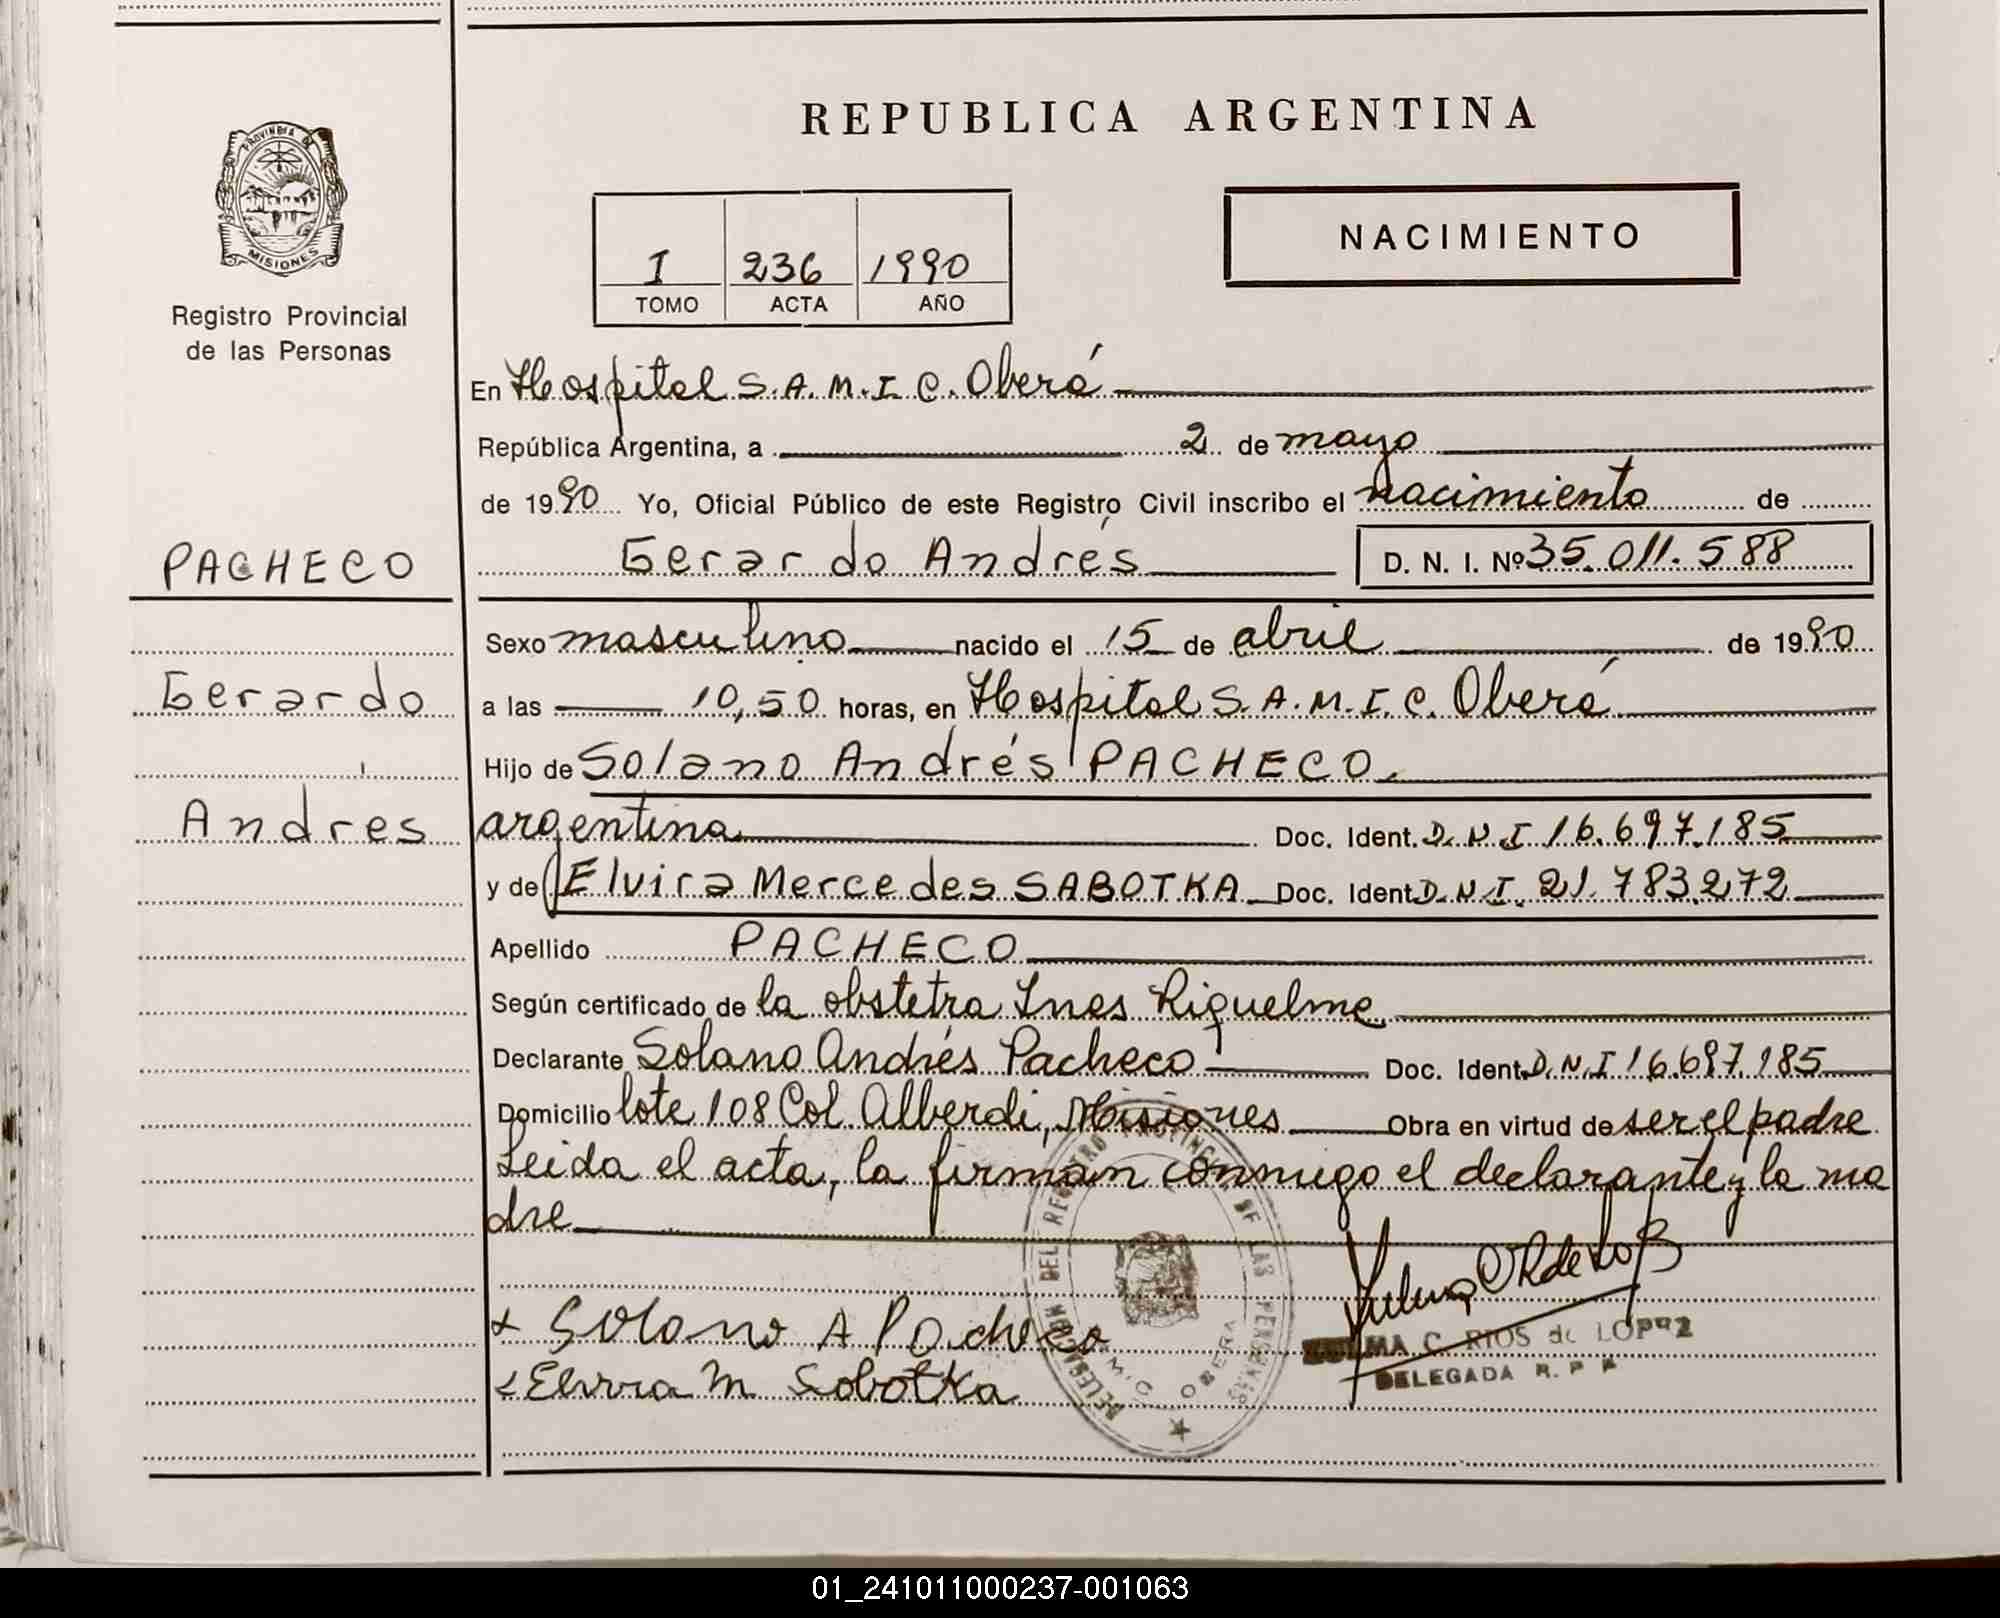 REPUBLICA ARGENTINA
PROVINCIA DE
MISIONES
Registro Provincial
de las Personas
I 236 1990
TOMO ACTA AÑO
NACIMIENTO
En Hospital S.A.M.I.C. Oberá
República Argentina, a 2 de mayo
de 1990 Yo, Oficial Público de este Registro Civil inscribo el nacimiento de
PACHECO
Gerardo Andrés D. N. I. Nº 35.011.588
Sexo masculino nacido el 15 de abril de 1990
Gerardo
a las 10,50 horas, en Hospital S.A.M.I.C. Oberá
Hijo de Solano Andrés PACHECO,
Andrés
argentina Doc. Ident. D.N.I 16.697.185
y de (Elvira Mercedes SABOTKA Doc. Ident. D.N.I. 21.783.272
Apellido PACHECO
Según certificado de la obstetra Ines Riquelme
Declarante Solano Andrés Pacheco Doc. Ident. D.N.I 16.697.185
Domicilio lote 108 Col. Alberdi, Misiones Obra en virtud de ser el padre
Leida el acta, la firman conmigo el declarante y la ma
dre
Solano A Pacheco
Elvira M Sobotka
ZULMA C. RIOS de LOPEZ
DELEGADA R. P. P.
DELEGACION DEL REGISTRO PROVINCIAL DE LAS PERSONAS
OBERA
01_241011000237-001063